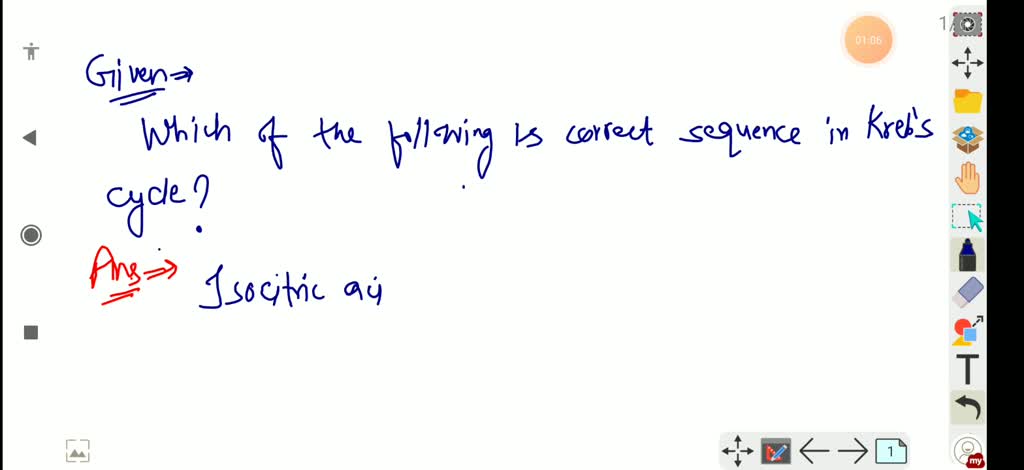 01:06
1/
Given⇒
Which of the following is correct sequence in Kreb's
cycle?
Ans⇒
Isocitric aci
T
1
my